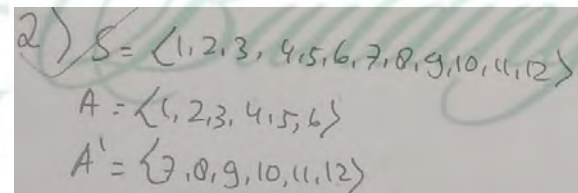 2) S = {1, 2, 3, 4, 5, 6, 7, 8, 9, 10, 11, 12}
A = {1, 2, 3, 4, 5, 6}
A' = {7, 8, 9, 10, 11, 12}